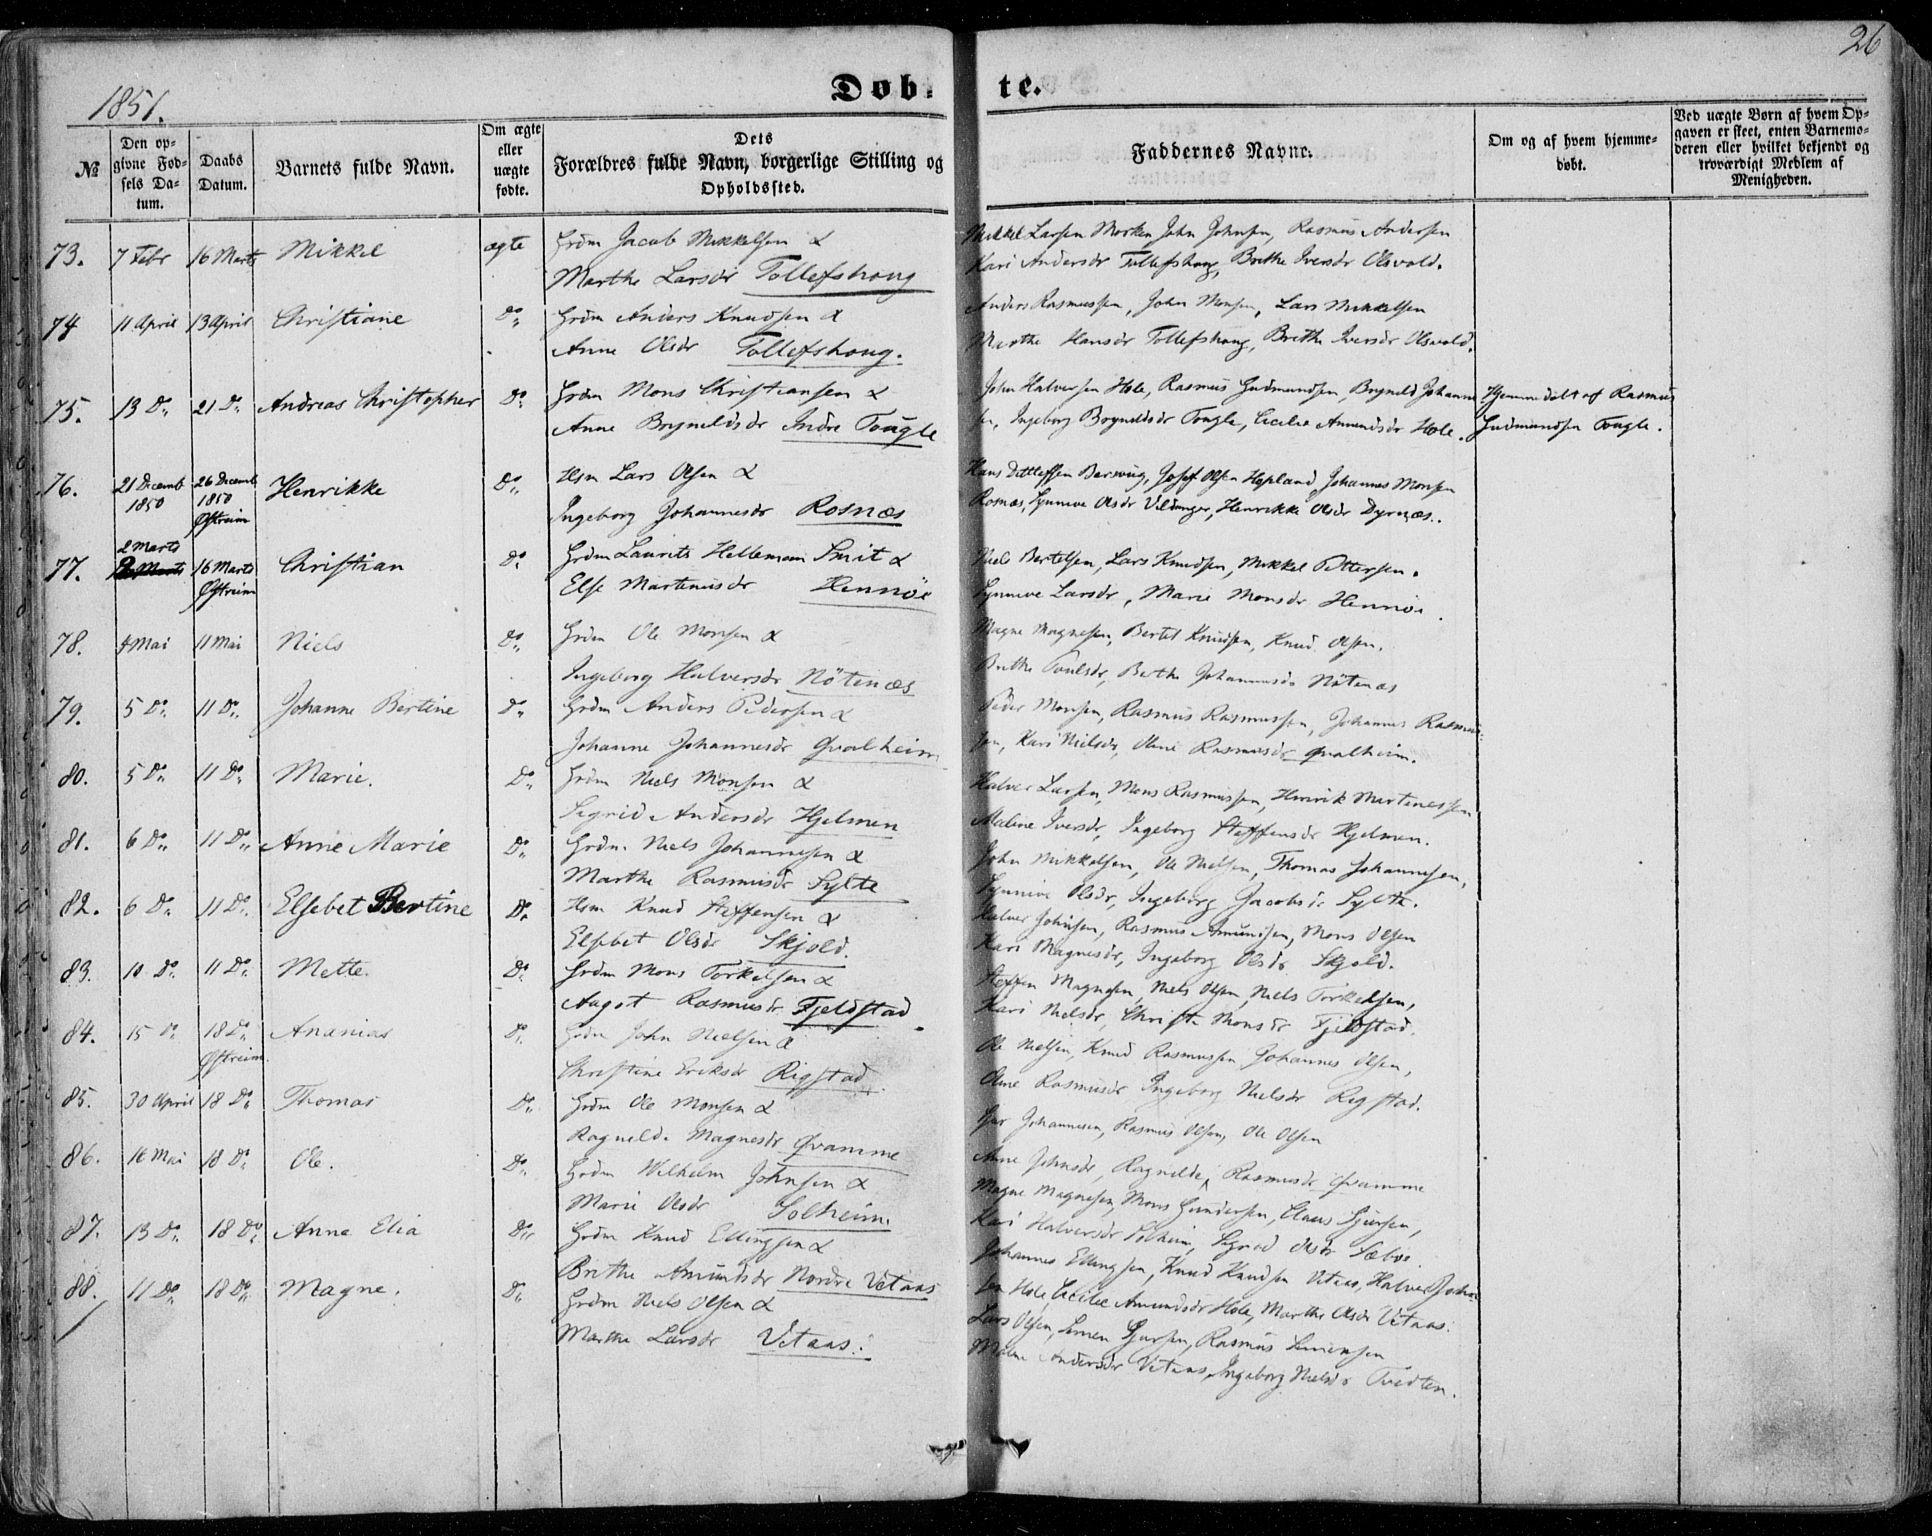 26
1851.
Døb- te.
№
Den op-
givne Fød-
sels Da-
tum.
Daabs
Datum.
Barnets fulde Navn.
Om ægte
eller
uægte
fødte.
Dets
Forældres fulde Navn, borgerlige Stilling og
Opholdssted.
Faddernes Navne.
Om og af hvem hjemme-
døbt.
Ved uægte Børn af hvem Op-
gaven er skeet, enten Barnemo-
deren eller hvilket bekjendt og
troværdigt Medlem af
Menigheden.
73. 7 Febr 16 Marts Mikkel ægte Grdm Jacob Mikkelsen &
Marthe Larsdr Tollefshoug
Mikkel Larsen Morken John Johnsen, Rasmus Andersen
Kari Andersdr Tollefshoug, Brithe Iversdr Olsvold.
74 11 April 13 April Christiane Do Grdm Anders Knudsen &
Anne Olsdr Tollefshoug.
Anders Rasmussen, John Monsen, Lars Mikkelsen
Marthe Hansdr Tollefshoug, Brithe Iversdr Olsvold.
75. 13 Do 21 Do Andreas Christopher Do Grdm Mons Christiansen &
Anne Brynildsdr Indre Tougle
John Halversen Hole, Rasmus Gudmundsen, Brynild Johanne
sen, Ingeborg Brynildsdr Tougle, Cecilie Amundsdr Hole.
Hjemmedøbt af Rasmus
Gudmundsen Tougle.
76. 21 Decemb 1850 26 Decemb 1850 Øftreim Henrikke Do Hsm Lars Olsen &
Ingeborg Johannesdr Rosnæs
Hans Dettleffsen Barwing, Josef Olsen Hopland Johannes Monsen
Rosnæs, Synneve Olsdr Vildanger, Henrikke Olsdr Dyrnæs.
77. 2 Marts 16 Marts Øftreim Christian Do Grdm Laurits Helleman Smit &
Else Martinusdr Hennöe
Niels Bertelsen, Lars Knudsen, Mikkel Pettersen.
Synneve Larsdr, Marie Monsdr Hennöe.
78. 4 Mai 11 Mai Niels Do Grdm Ole Monsen &
Ingeborg Halversdr Nötenæs
Magne Magnesen, Bertel Knudsen, Knud Olsen.
Brithe Poulsdr, Berthe Johannesdr Nötenæs
79. 5 Do 11 Do Johanne Bertine Do Grdm Anders Pedersen &
Johanne Johannesdr Qvalheim
Peder Monsen, Rasmus Rasmussen, Johannes Rasmus-
sen, Kari Nielsdr, Oline Rasmusdr Qvalheim.
80. 5 Do 11 Do Marie. Do Grdm Niels Monsen &
Segrid Andersdr Hjelmen
Halver Larsen, Mons Rasmussen, Henrik Martinessen
Maline Iversdr, Ingeborg Steffensdr Hjelmen.
81. 6 Do 11 Do Anne Marie Do Grdm. Niels Johannesen &
Marthe Rasmusdr Sylte
John Mikkelsen, Ole Nielsen, Thomas Johannesen,
Synnive Olsdr, Ingeborg Jacobsdr Sylte.
82. 6 Do 11 Do Elsebet Bertine Do Hsm Knud Steffensen &
Elsebet Olsdr Skjold.
Halver Johnsen, Rasmus Amundsen, Mons Olsen
Kari Magnesdr, Ingeborg Olsdr Skjold.
83. 10 Do 11 Do Mette. Do Grdm Mons Torkelsen &
Aagot Rasmusdr Fjeldstad.
Steffen Magnesen, Niels Olsen, Niels Torkelsen,
Kari Nielsdr, Christi Monsdr Fjeldstad.
84. 15 Do 18 Do Øftreim. Ananias Do Grdm John Nielsen &
Christine Eriksdr Rigstad.
Ole Nielsen, Knud Rasmussen Johannes Olsen,
Oline Rasmusdr Ingeborg Nielsdr Rigstad.
85. 30 April 18 Do Thomas Do Grdm Ole Monsen &
Ragnild Magnesdr Qvamme
Johannesen, Rasmus Olsen, Ole Olsen
Anne Johnsdr, Ragnilde, Rasmusdr Qvamme
86. 16 Mai 18 Do Ole. Do Grdm Wilhelm Johnsen &
Marie Olsdr Solheim.
Magne Magnesen, Mons Gundersen, Claus Sjursen,
Kari Halversdr Solheim, Sigrid Olsdr Sæbøe.
87. 13 Do 18 Do Anne Elia Do Grdm Knud Ellingsen &
Brithe Amundsdr Nordre Vetaas
Johannes Ellingsen, Knud Knudsen Vetaas, Halver Johan
sen Hole, Cecilie Amundsdr Hole, Marthe Olsdr Vetaas.
88. 11 Do 18 Do Magne. Do Grdm Niels Olsen &
Marthe Larsdr Vetaas.
Lars Olsen, Simen Sjursen, Rasmus Simensen
Andersdr Vetaas, Ingeborg Nielsdr Tvedten.